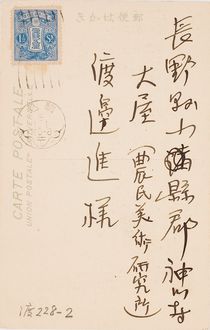 郵便はかき
長野縣小縣郡神川村
大屋(農民美術研究所)
渡邊進様
CARTE POSTALE
UNION POSTALE UNIVERSELLE
1½ Sn.
渡228-2